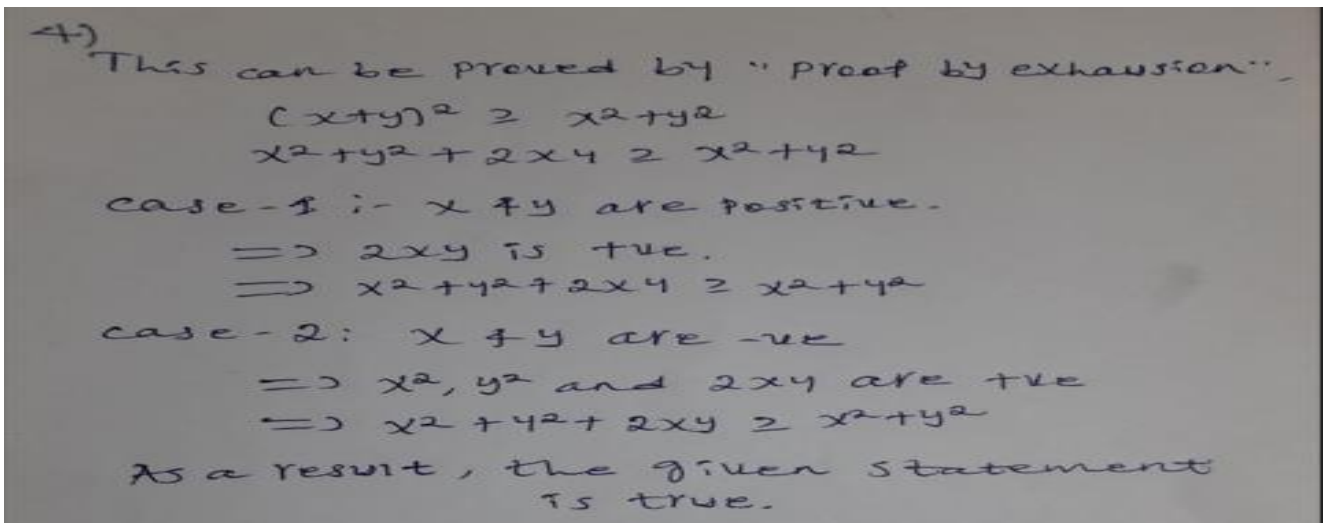 4)
This can be proved by "proof by exhaustion".
(x+y)² ≥ x²+y²
x²+y²+2xy ≥ x²+y²
case-1 :- x & y are positive.
=> 2xy is +ve.
=> x²+y²+2xy ≥ x²+y²
case-2: x & y are -ve
=> x², y² and 2xy are +ve
=> x²+y²+2xy ≥ x²+y²
As a result, the given statement
is true.